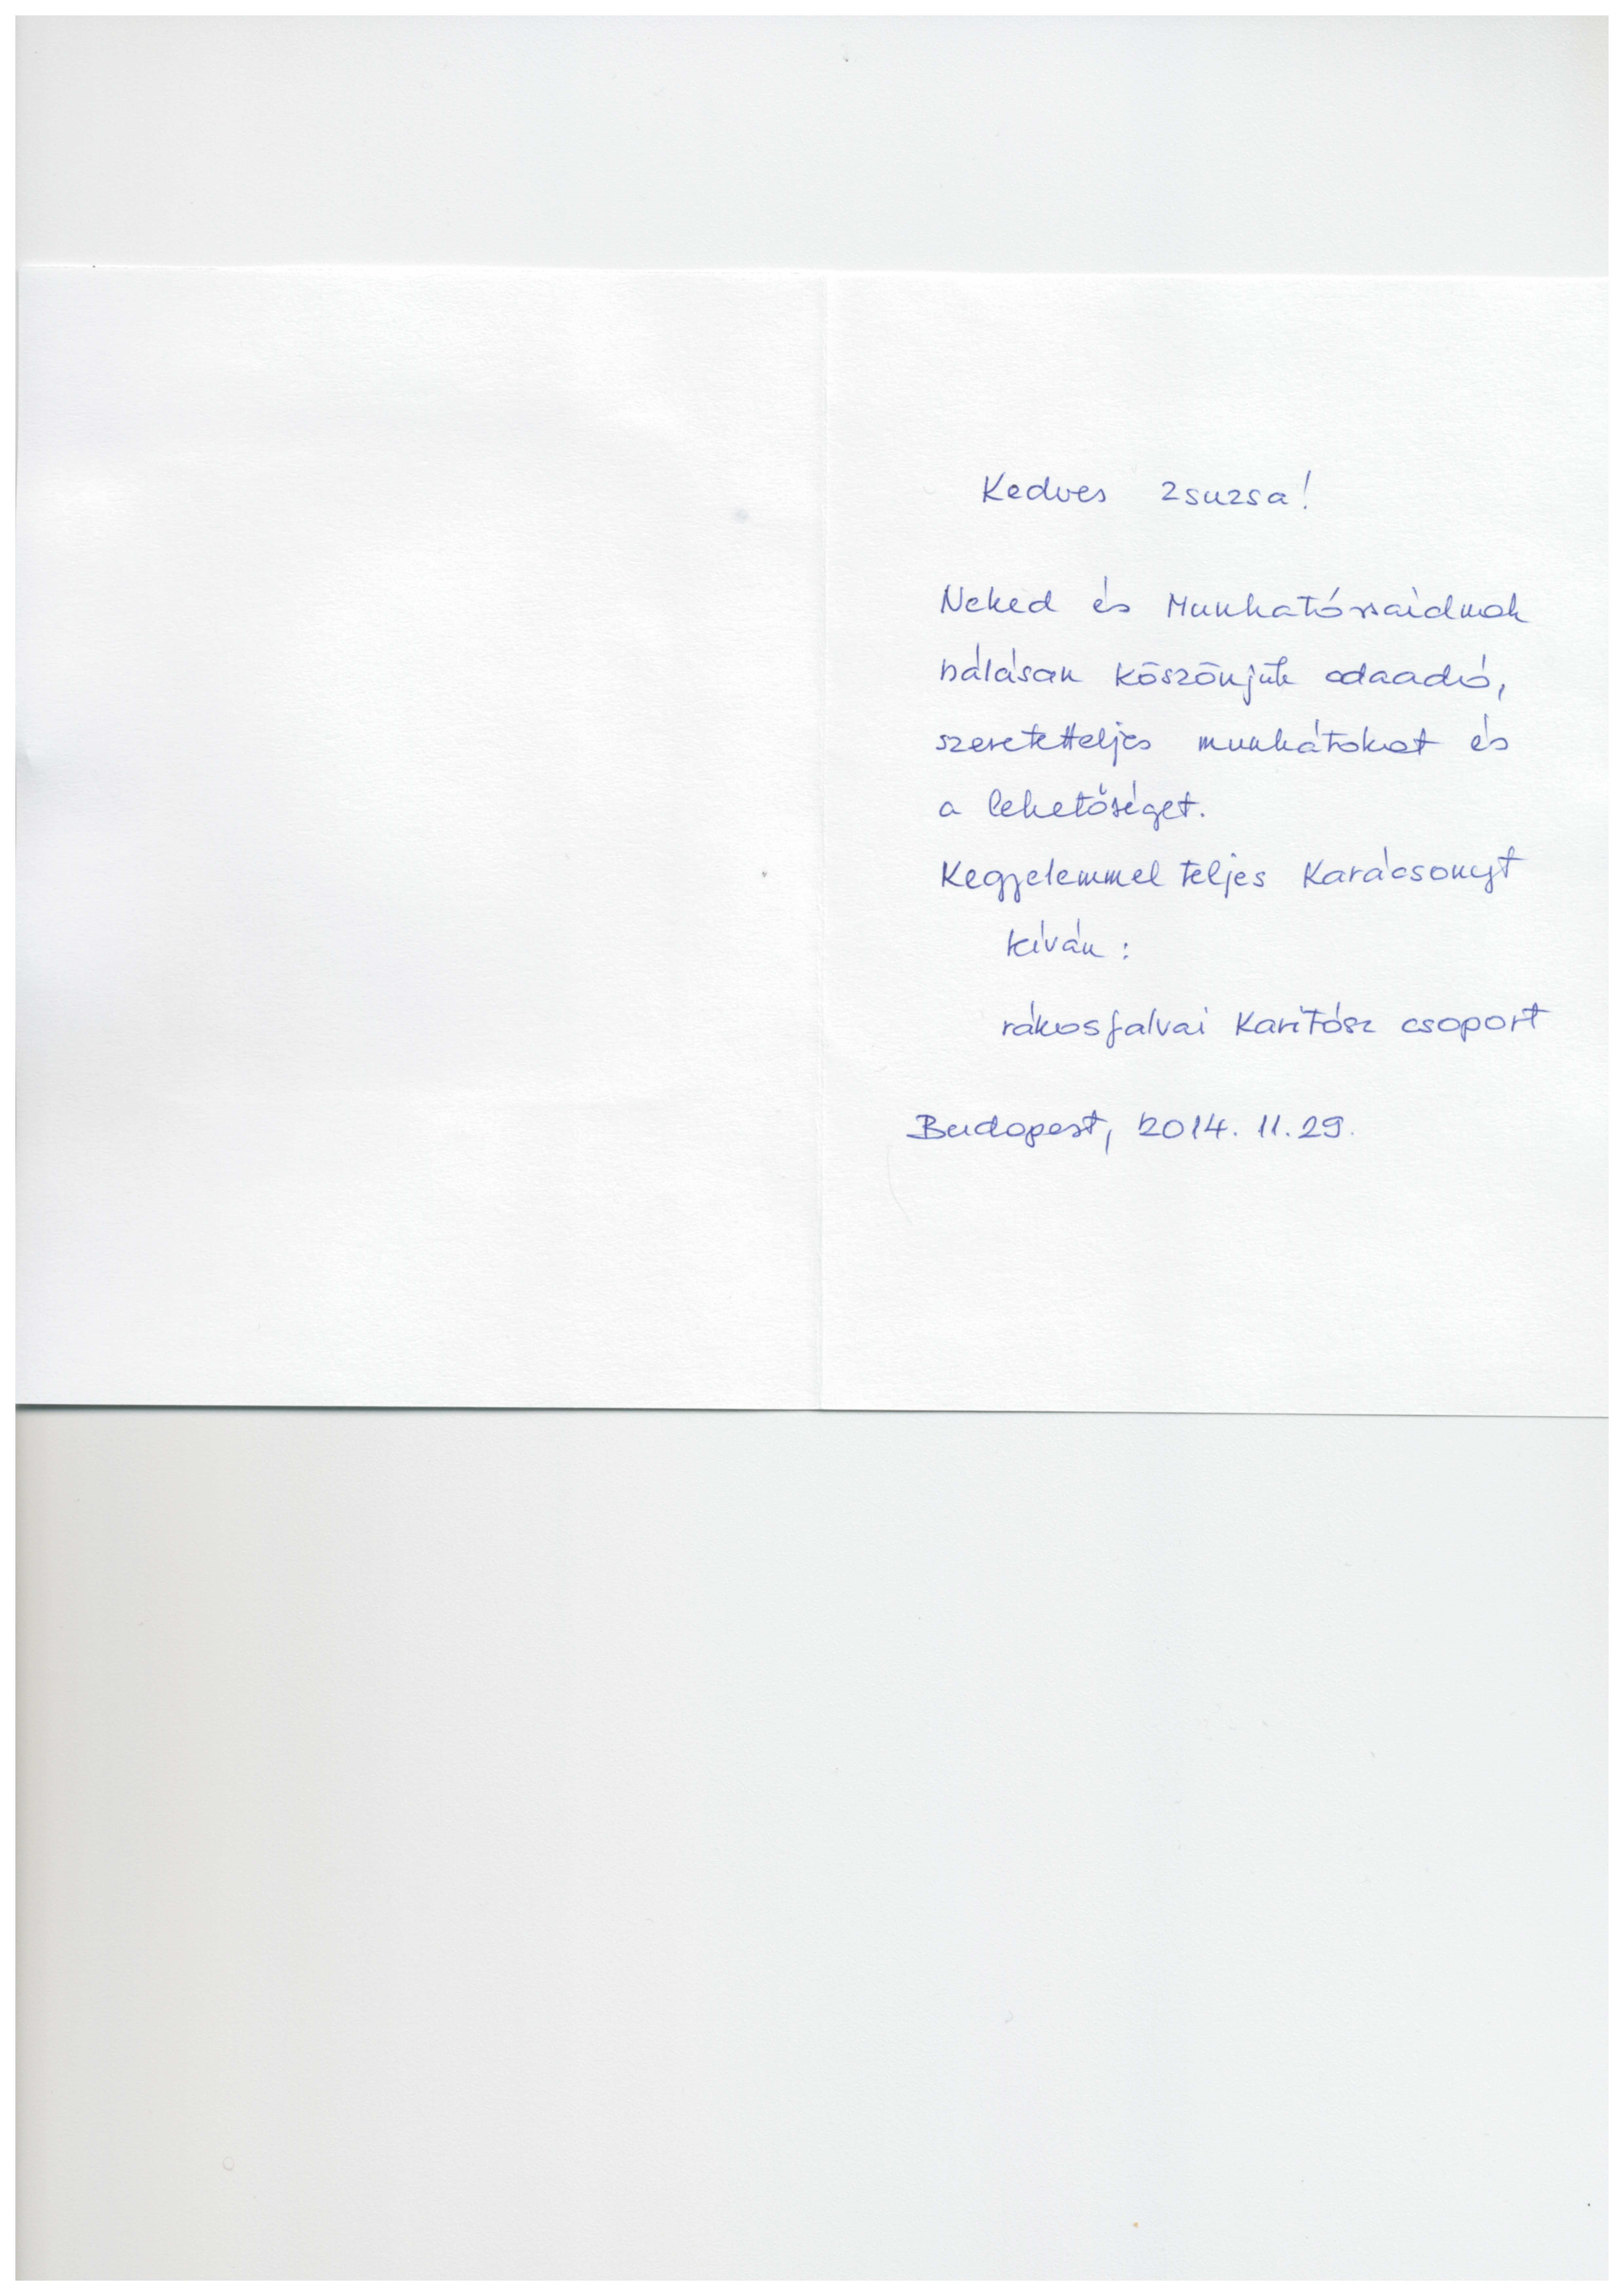 Kedves Zsuzsa!
Neked és Munkatársaidnak
hálásan köszönjük odaadó,
szeretetteljes munkátokat és
a lehetőséget.
Kegyelemmel teljes Karácsonyt
kíván:
rákosfalvai Karitász csoport
Budapest, 2014. 11. 29.